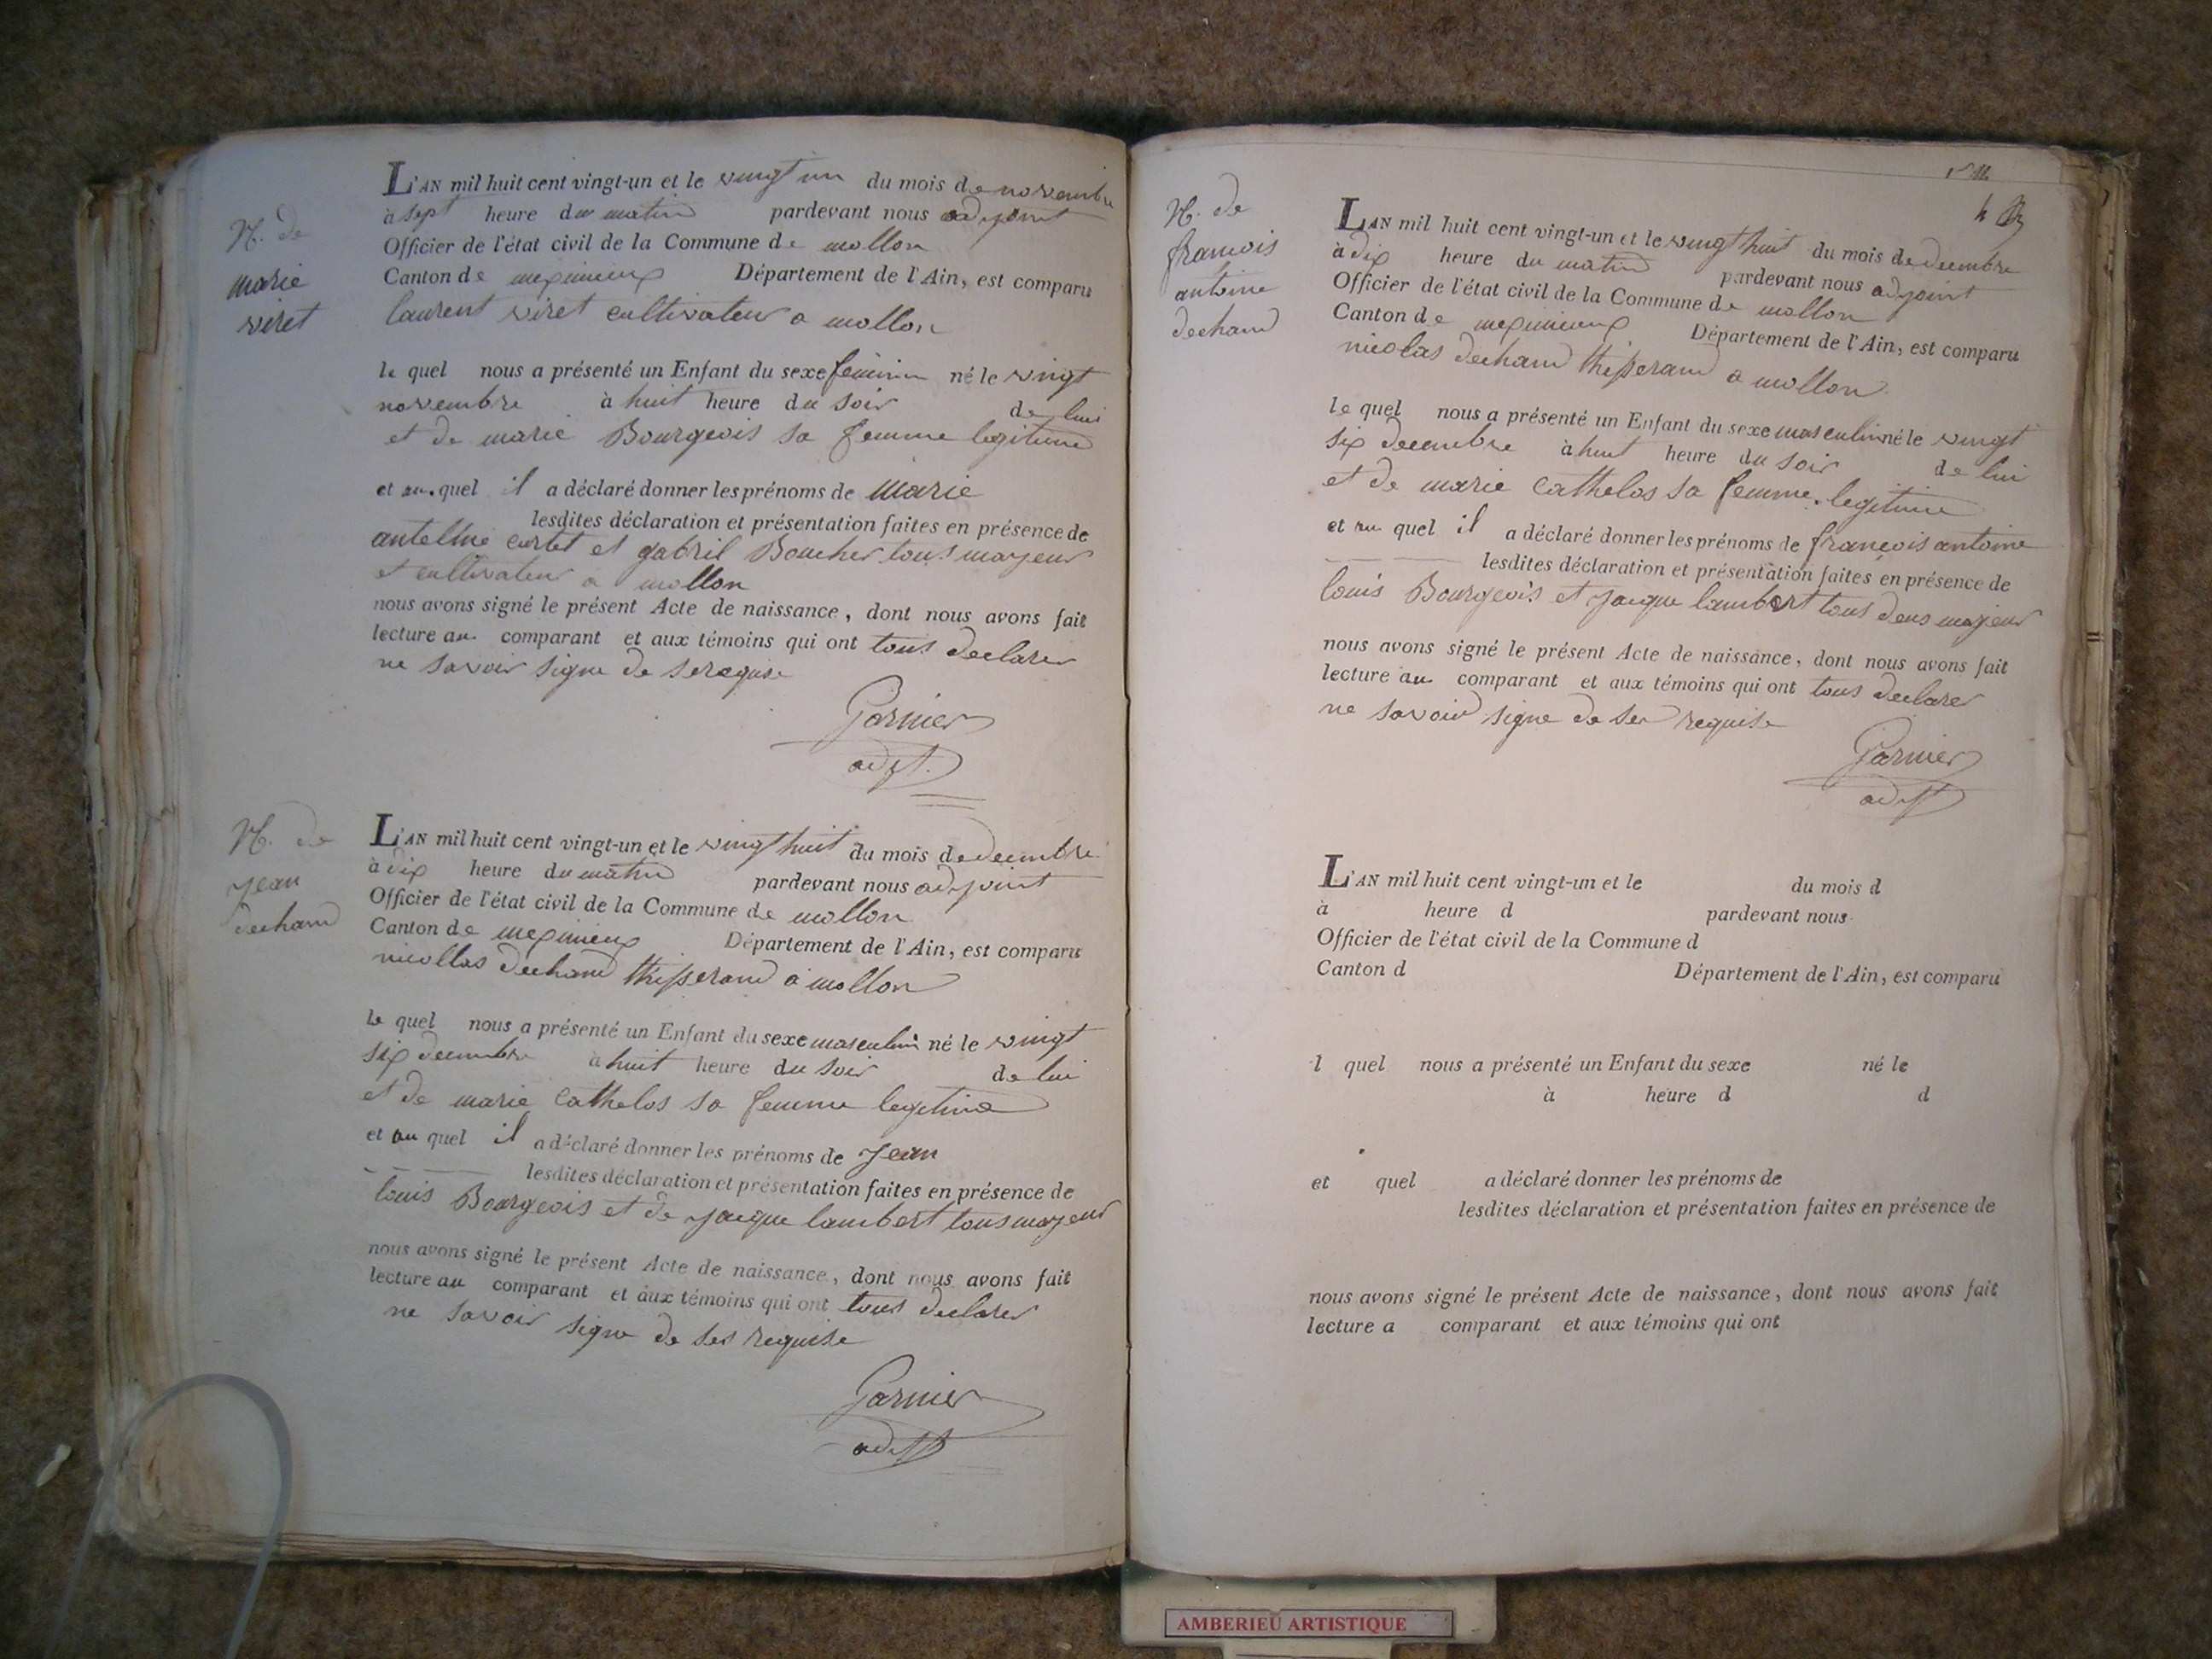 N. de
marie
viret
L'AN mil huit cent vingt-un et le vingt un du mois de novembre
à sept heure du matin pardevant nous adjoint
Officier de l'état civil de la Commune de mollon
Canton de meximieux Département de l'Ain, est comparu
laurent viret cultivateur a mollon
le quel nous a présenté un Enfant du sexe féminin né le vingt
novembre à huit heure du soir de lui
et de marie Bourgeois sa femme legitime
et au quel il a déclaré donner les prénoms de marie
lesdites déclaration et présentation faites en présence de
antelme cortet et gabril Boucher tous mayeur
et cultivateur a mollon
nous avons signé le présent Acte de naissance, dont nous avons fait
lecture au comparant et aux témoins qui ont tous declarer
ne savoir signe de se requise
Garnier
adjt.
N. de
jean
dechand
L'AN mil huit cent vingt-un et le vingt huit du mois de decembre
à dix heure du matin pardevant nous adjoint
Officier de l'état civil de la Commune de mollon
Canton de meximieux Département de l'Ain, est comparu
nicollas dechand thisserand a mollon
le quel nous a présenté un Enfant du sexe masculin né le vingt
six decembre à huit heure du soir de lui
et de marie Cathelos sa femme legitime
et au quel il a déclaré donner les prénoms de jean
lesdites déclaration et présentation faites en présence de
louis Bourgeois et de jacque lambert tous mayeur
nous avons signé le présent Acte de naissance, dont nous avons fait
lecture au comparant et aux témoins qui ont tous declarer
ne savoir signe de ser requise
Garnier
adjt
N. de
francois
antoine
dechand
L'AN mil huit cent vingt-un et le vingt huit du mois de decembre
à dix heure du matin pardevant nous adjoint
Officier de l'état civil de la Commune de mollon
Canton de meximieux Département de l'Ain, est comparu
nicolas dechand thisserand a mollon
le quel nous a présenté un Enfant du sexe masculin né le vingt
six decembre à huit heure du soir de lui
et de marie Cathelos sa femme legitime
et au quel il a déclaré donner les prénoms de françois antoine
lesdites déclaration et présentation faites en présence de
louis Bourgeois et jacque lambert tous deus mayeur
nous avons signé le présent Acte de naissance, dont nous avons fait
lecture au comparant et aux témoins qui ont tous declarer
ne savoir signe de ser requise
Garnier
adjt
L'AN mil huit cent vingt-un et le du mois d
à heure d pardevant nous
Officier de l'état civil de la Commune d
Canton d Département de l'Ain, est comparu
l quel nous a présenté un Enfant du sexe né le
à heure d d
et quel a déclaré donner les prénoms de
lesdites déclaration et présentation faites en présence de
nous avons signé le présent Acte de naissance, dont nous avons fait
lecture a comparant et aux témoins qui ont
AMBERIEU ARTISTIQUE